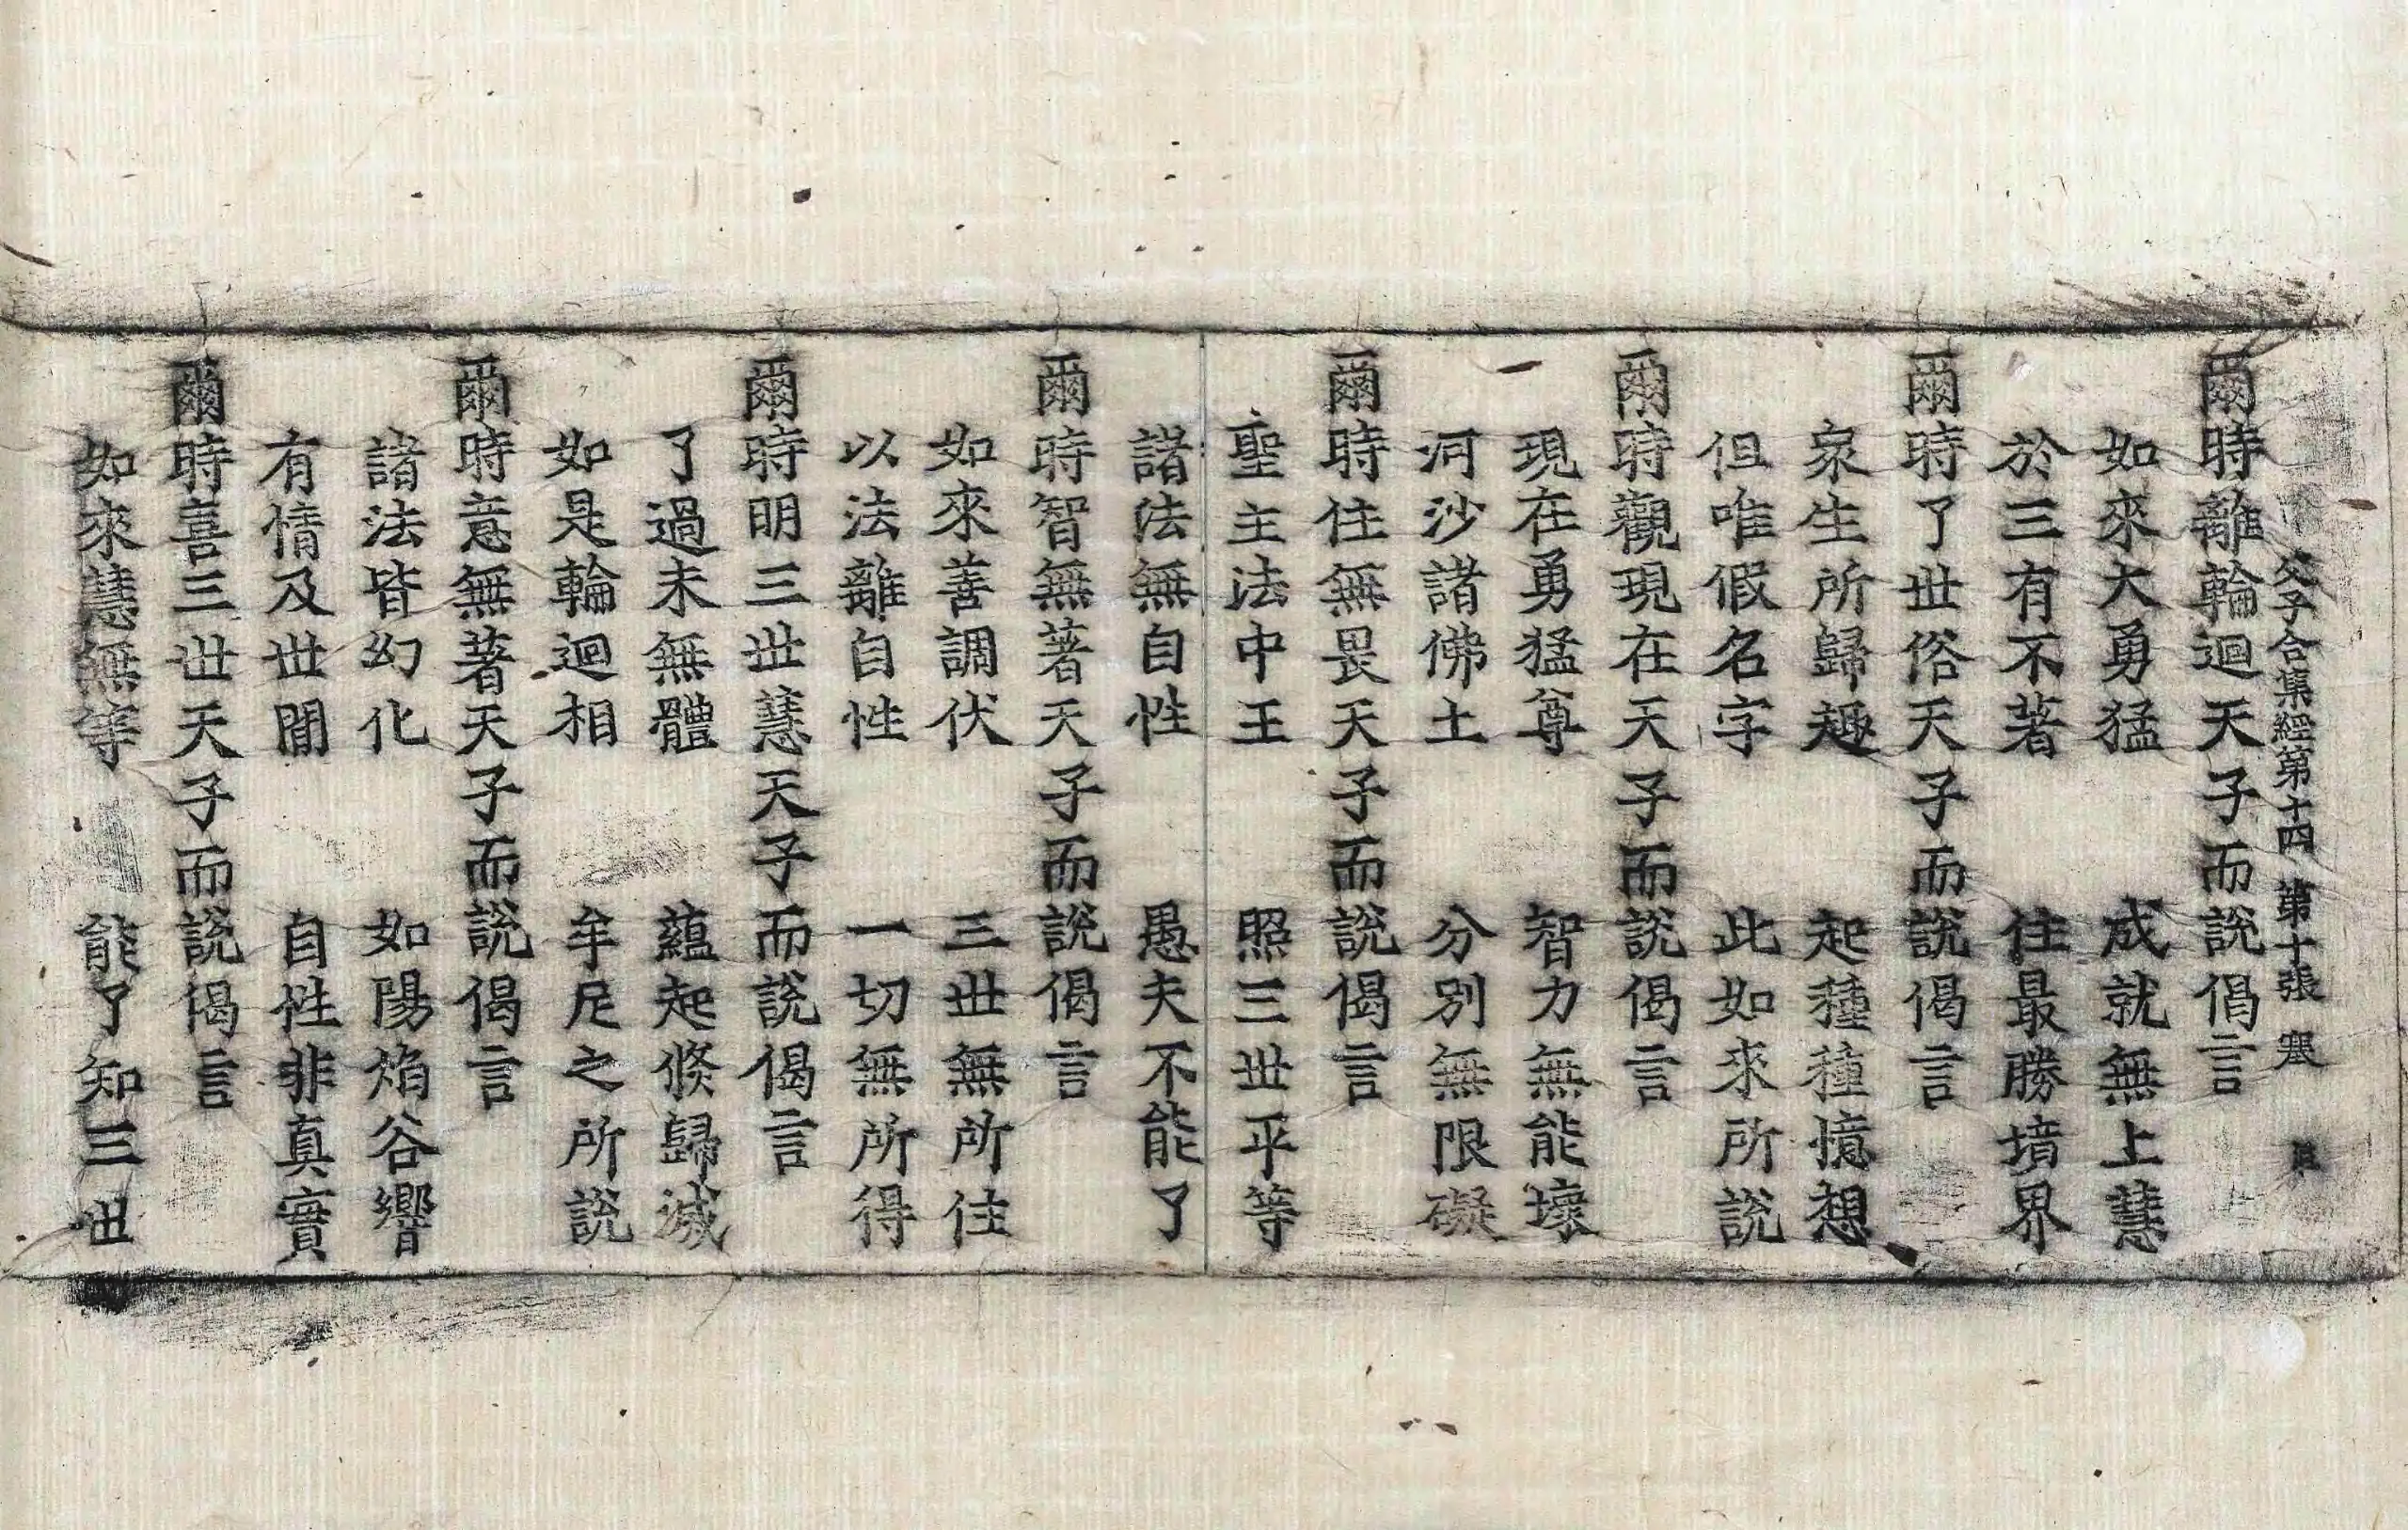 父子合集經第十四　第十張　寒
爾時離輪迴天子而說偈言
如來大勇猛　成就無上慧
於三有不著　住最勝境界
爾時了世俗天子而說偈言
衆生所歸趣　起種種憶想
但唯假名字　此如來所說
爾時觀現在天子而說偈言
現在勇猛尊　智力無能壞
河沙諸佛土　分別無限礙
爾時住無畏天子而說偈言
聖主法中王　照三世平等
諸法無自性　愚夫不能了
爾時智無著天子而說偈言
如來善調伏　三世無所住
以法離自性　一切無所得
爾時明三世慧天子而說偈言
了過未無體　蘊起倐歸滅
如是輪迴相　牟尼之所說
爾時意無著天子而說偈言
諸法皆幻化　如陽焰谷響
有情及世間　自性非真實
爾時喜三世天子而說偈言
如來慧無等　能了知三世